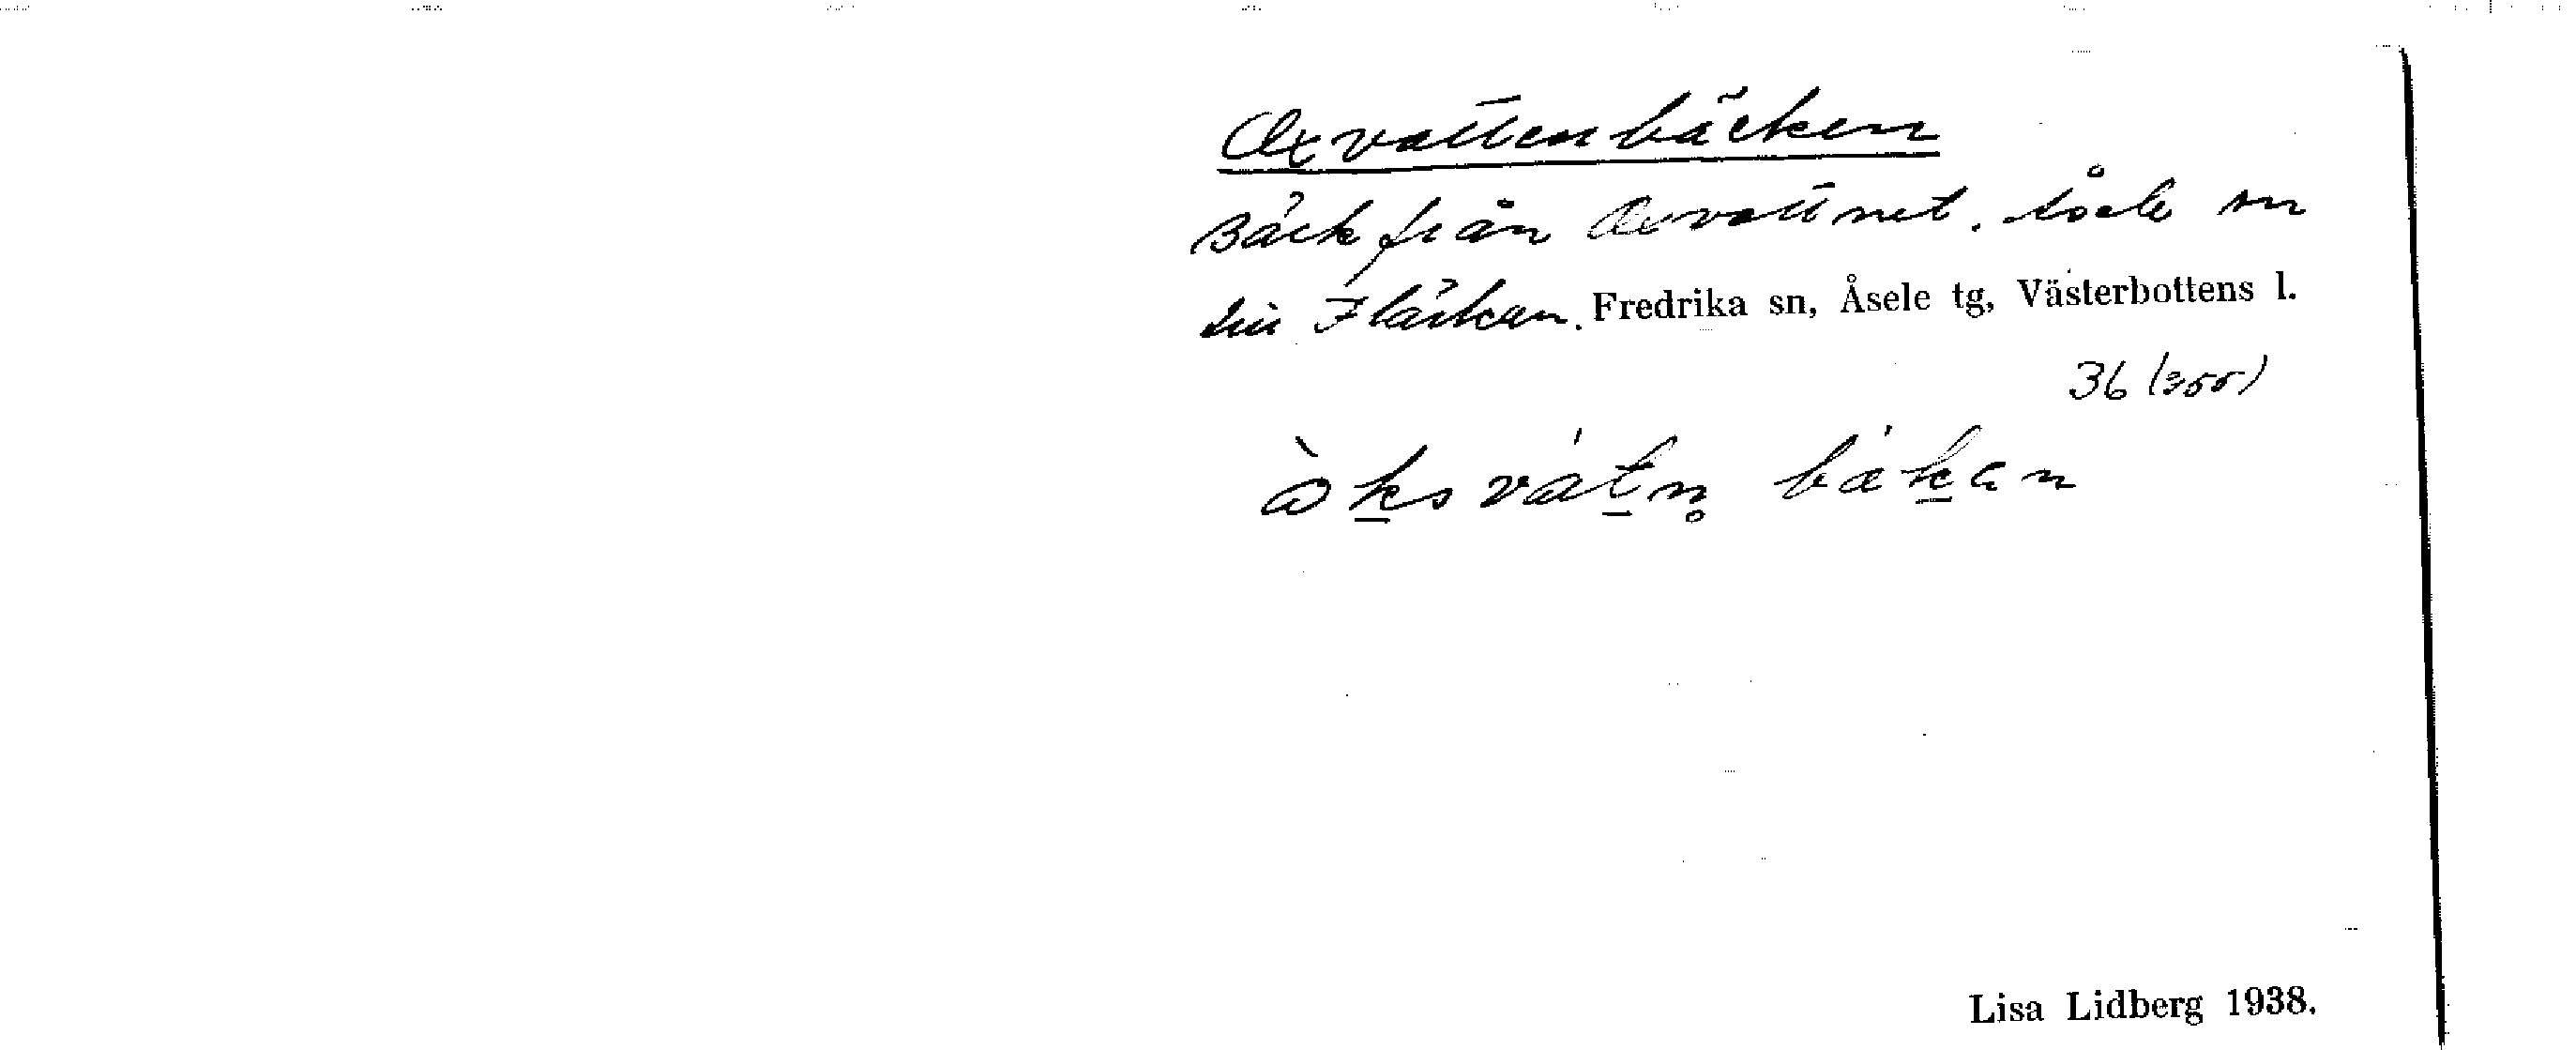 Oxvattenbäcken
Bäck från Oxvattnet. Åsele sn
till Flärken. Fredrika sn, Åsele tg, Västerbottens l.
36 (355)
òksvátn̥ bákan
Lisa Lidberg 1938.